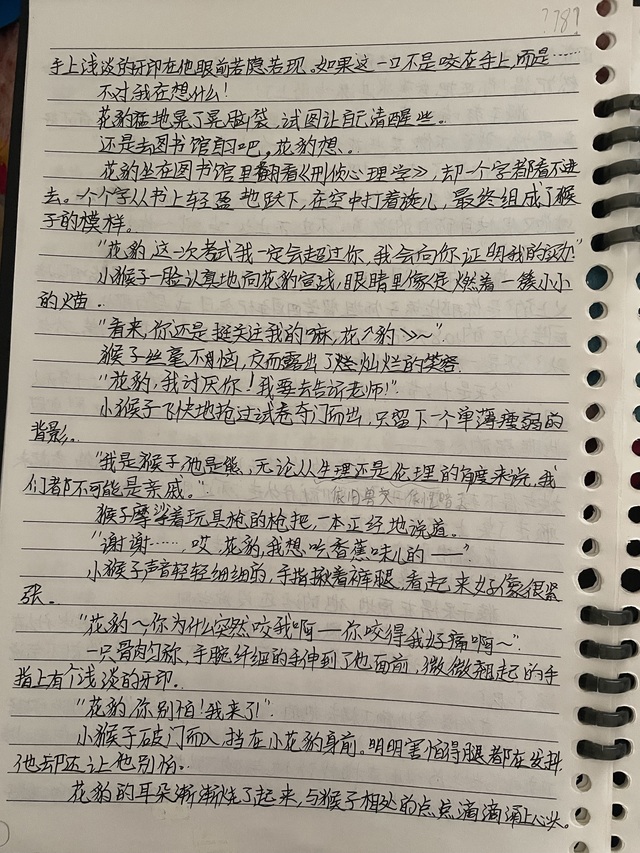 ?78?
手上浅淡的牙印在他眼前若隐若现。如果这一口不是咬在手上,而是……
不对我在想什么!
花豹猛地晃了晃脑袋,试图让自己清醒些。
还是去图书馆自习吧,花豹想。
花豹坐在图书馆里翻看《刑侦心理学》,却一个字都看不进
去。一个个字从书上轻盈地跃下,在空中打着旋儿,最终组成了猴
子的模样。
"花豹,这一次考试我一定会超过你,我会向你证明我的实力!"
小猴子一脸认真地向花豹宣战,眼睛里像是燃着一簇小小
的火苗。
"看来,你还是挺关注我的嘛,花豹~"
猴子丝毫不恼,反而露出了灿烂的笑容。
"花豹,我讨厌你!我要去告诉老师!"
小猴子飞快地抢过试卷夺门而出,只留下一个单薄瘦弱的
背影。
"我是猴子,他是熊,无论从生理还是伦理的角度来说,我
们都不可能是亲戚。"
猴子摩挲着玩具枪的枪把,一本正经地说道。
"谢谢……哎,花豹,我想吃香蕉味儿的——"
小猴子声音轻轻细细的,手指揪着裤腿,看起来好像很紧
张。
"花豹~你为什么突然咬我啊——你咬得我好痛啊~"
一只骨肉匀称,手腕纤细的手伸到了他面前,微微翘起的手
指上有个浅淡的牙印。
"花豹,你别怕!我来了!"
小猴子破门而入,挡在小花豹身前。明明害怕得腿都在发抖
他却还让他别怕。
花豹的耳朵渐渐烧了起来,与猴子相处的点点滴滴涌上心头。